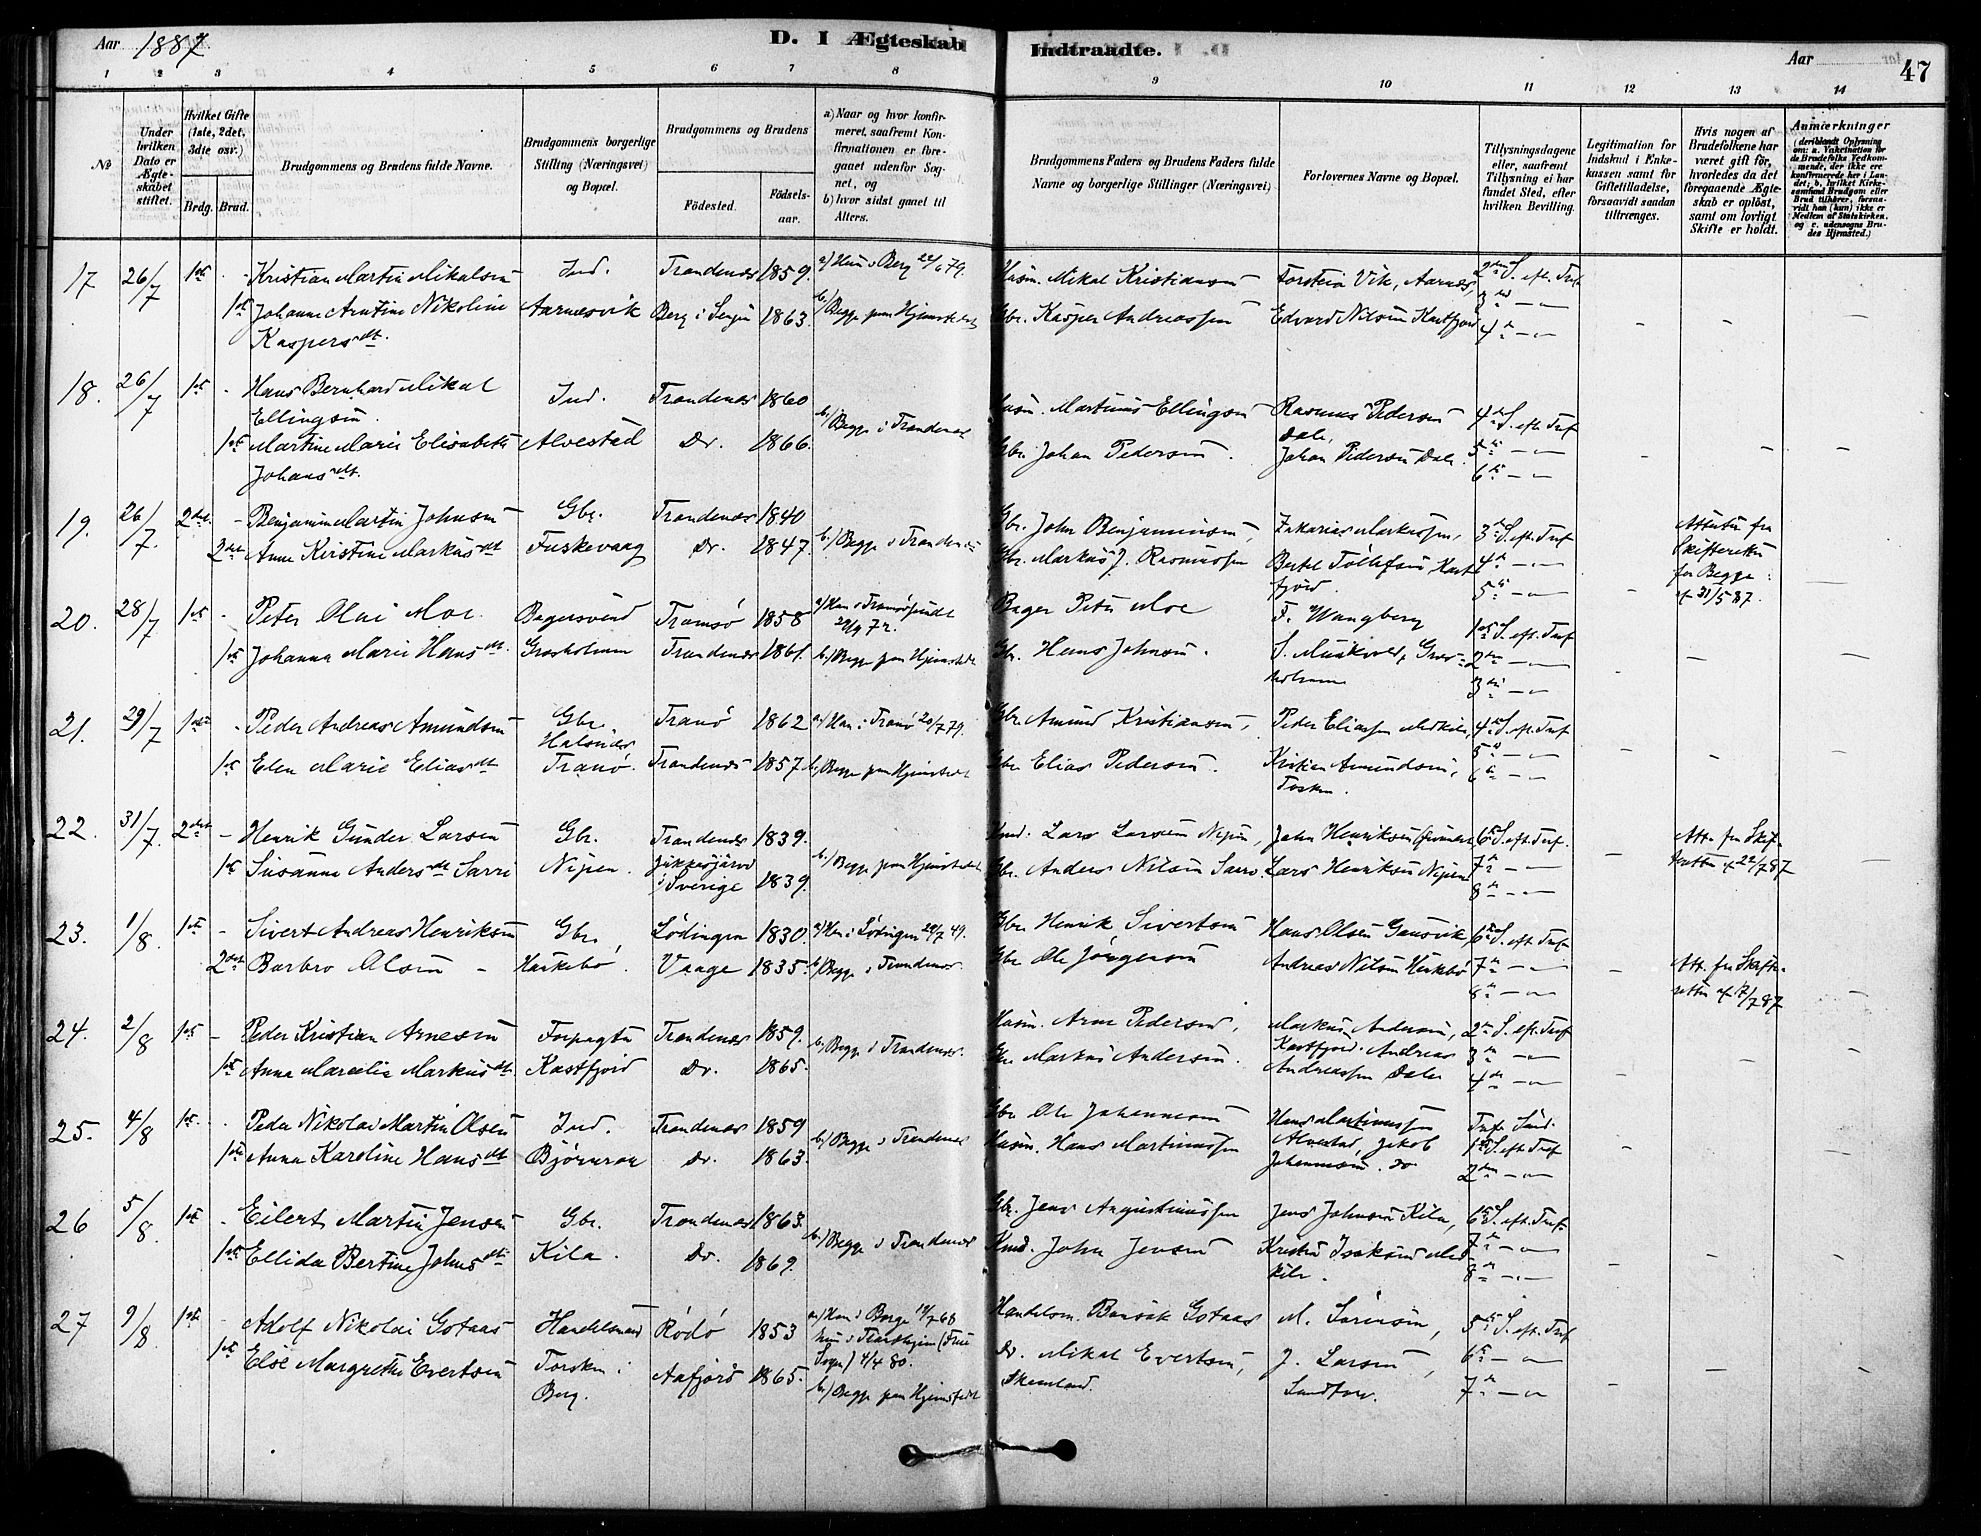 Aar 1887
D. I Ægteskab Indtraadte.
Aar
47
1 2 3 4 5 6 7 8 9 10 11 12 13 14
No
Under hvilken Dato er Ægteskabet stiftet.
Hvilket Gifte (1ste, 2det, 3die osv.)
Brdg. Brud.
Brudgommens og Brudens fulde Navne.
Brudgommens borgerlige Stilling (Næringsvei) og Bopæl.
Brudgommens og Brudens
Fødested.
Fødselsaar.
a) Naar og hvor konfirmeret, saafremt Konfirmationen er foregaaet udenfor Sognet, og
b) hvor sidst gaaet til Alters.
Brudgommens Faders og Brudens Faders fulde Navne og borgerlige Stillinger (Næringsvei)
Forlovernes Navne og Bopæl.
Tillysningsdagene eller, saafremt Tillysning ei har fundet Sted, efter hvilken Bevilling.
Legitimation for Indskud i Enkekassen samt for Giftetilladelse, forsaavidt saadan tiltrænges.
Hvis nogen af Brudefolkene har været gift før, hvorledes da det foregaaende Ægteskab er opløst, samt om lovligt Skifte er holdt.
Anmærkninger
(deriblandt Oplysning om: a. Vakcination for de Brudefolks Vedkommende, der ikke ere konfirmerede her i Landet; b. hvilket Kirkesamfund Brudgom eller Brud tilhører, forsaavidt han (hun) ikke er Medlem af Statskirken, og c. udensogns Brudes Hjemsted.)
17 26/7 1ste - Kristian Martin Mikalsen Ind. Trondenæs 1859. Husm. Mikal Kristiansen Torstein Vik, Aarnæs, 2den S. eft. Tref.
1ste Johanne Arntine Nikoline Aarnæsvik Berg i Senjen 1863. b) Begge paa Hjemstedet Gbr. Kasper Andreassen Edvard Nilsen Kastfjord 3die
Kaspersdt. 4de
18. 26/7 1ste - Hans Bernhard Mikal Ind. Trondenæs 1860 Husm. Martinus Ellingsen Rasmus Pedersen 4de S. eft. Tref
Ellingsen. b) Begge i Trondenæs Dale,
1ste Martine Marie Elisabeth Alvestad Do. 1866. Gbr. Johan Pedersen. Johan Pedersen Dale. 5te
Johansdt. 6te
19. 26/7. 2det - Benjamin Martin Johnsen Gbr. Trondenæs 1840 Gbr. John Benjaminsen, Zakarias Markussen, 3die S. eft. Tref Attester fra
2det Anne Kristine Markusdt Fuskevaag Do. 1847. b) Begge i Trondenæs Gbr. Markus J. Rasmussen Bertel Tollefsen Kast- 4de Skifteretten
fjord. 5te for Begge
af 31/5 87.
20. 28/7 1ste - Peter Olai Moe. Bagersvend Tromsø 1858 Bager Peter Moe F. Wangberg 1ste S. eft. Tref
1ste Johanna Marie Hansdt. Grasholmen Trondenæs 1861. b) Begge paa Hjemstedet Gbr. Hans Johnsen. 2den
holmen 3die
21. 29/7 1ste - Peder Andreas Amundsen Gbr. Tranø 1862 a) Han i Tranø 20/7 79. Gbr. Amund Kristiansen, Peder Eliassen Medkila, 4de S. eft. Tref
1ste Elen Marie Eliasdt Tranø. Trondenæs 1857 b) Begge paa Hjemstedet Gbr. Elias Pedersen. Kristian Amundsen, 5te
6te
22. 31/7. 2det - Henrik Gunder Larsen Gbr. Trondenæs 1839. Lars Larsen Nipen, John Henriksen 6te S. eft. Tref.
1ste Susanne Andersdt Sarri Nipen. Jukkasjärvi i Sverige 1839. b) Begge paa Hjemstedet Gbr. Anders Nilsen Sarri. Lars Henriksen Nipen 7de Att. fra Skifteretten af 22/7 87
8de
23. 1/8. 1ste - Sivert Andreas Henriksen Gbr. Lødingen 1830. a) Han i Lødingen 29/7 49. Gbr. Henrik Sivertsen Hans Olsen Gausvik, 6te S. eft. Tref.
2det Barbro Olsen - Vaage 1835. b) Begge i Trondenæs Gbr. Ole Jørgensen Andreas Nilsen 7de Att. fra Skifteretten
8de
24. 2/8 1ste - Peder Kristian Arnesen Forpagter Trondenæs 1859. b) Begge i Trondenæs. Husm. Arne Pedersen, Markus Andersen, 2den S. eft. Tref
1ste Anna Marcelie Markusdt. Kastfjord Do. 1865. Gbr. Markus Andersen. Kastfjord. Andreas 3die
Andreassen Dale 4de
25. 4/8 1ste - Peder Nikolai Martin Olsen Ind. Trondenæs 1859 b) Begge i Trondenæs Gbr. Ole Johannesen Hans Martinussen Tref. Sønd.
1ste Anna Karoline Hansdt Bjørnraa Do. 1863. Husm. Hans Martinussen Alvestad, Jakob 1ste S. eft. Tref
Johannesen. do 2den
26 5/8. 1ste - Eilert Martin Jensen Gbr. Trondenæs 1863. b) Begge i Trondenæs Gbr. Jens Augustinussen Jens Johnsen Kila, 6te S. eft. Tref.
1ste Ellida Bertine Johnsdt. Kila. Do. 1869. John Jensen Kristen Isaksen Medkila. 7de
8de
27 9/8 1ste - Adolf Nikolai Gotaas Handelsmand Rødø 1853 a) Han i Borge 12/7 68 Handelsm. Gotaas M. Sørensen, 5te S. eft. Tref
1ste Else Margrethe Evertsen Torsken i Aafjord 1865. hun i Trondhjem (Frue Sogn) 4/4 80. Do. Mikal Evertsen, J. Larsen, 6te
Berg. b) Begge paa Hjemstedet Skemland. Sandtorv. 7de